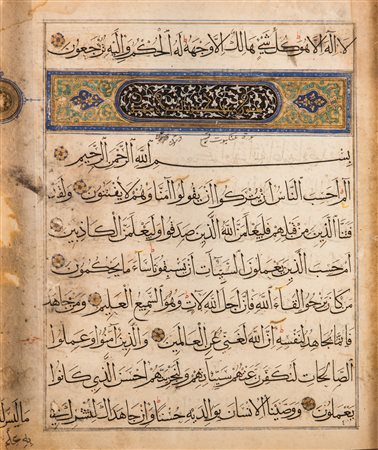 لا اله الا هو كل شيء هالك الا وجهه له الحكم واليه ترجعون
بسم الله الرحمن الرحيم
الم احسب الناس ان يتركوا ان يقولوا آمنا وهم لا يفتنون ولقد
فتنا الذين من قبلهم فليعلمن الله الذين صدقوا وليعلمن الكاذبين
ام حسب الذين يعملون السيئات ان يسبقونا ساء ما يحكمون
من كان يرجوا لقاء الله فان اجل الله لآت وهو السميع العليم ومن جاهد
فانما يجاهد لنفسه ان الله لغني عن العالمين والذين آمنوا وعملوا
الصالحات لنكفرن عنهم سيئاتهم ولنجزينهم احسن الذي كانوا
يعملون ووصينا الانسان بوالديه حسنا وان جاهداك لتشرك بي
ما ليس لك
به علم